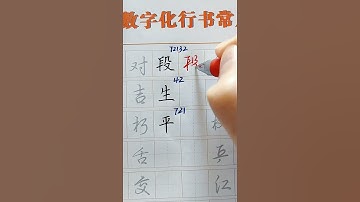 数字化行书常
对 段 段 72132
吉 生 42
朽 平 721
舌 兵
交 江